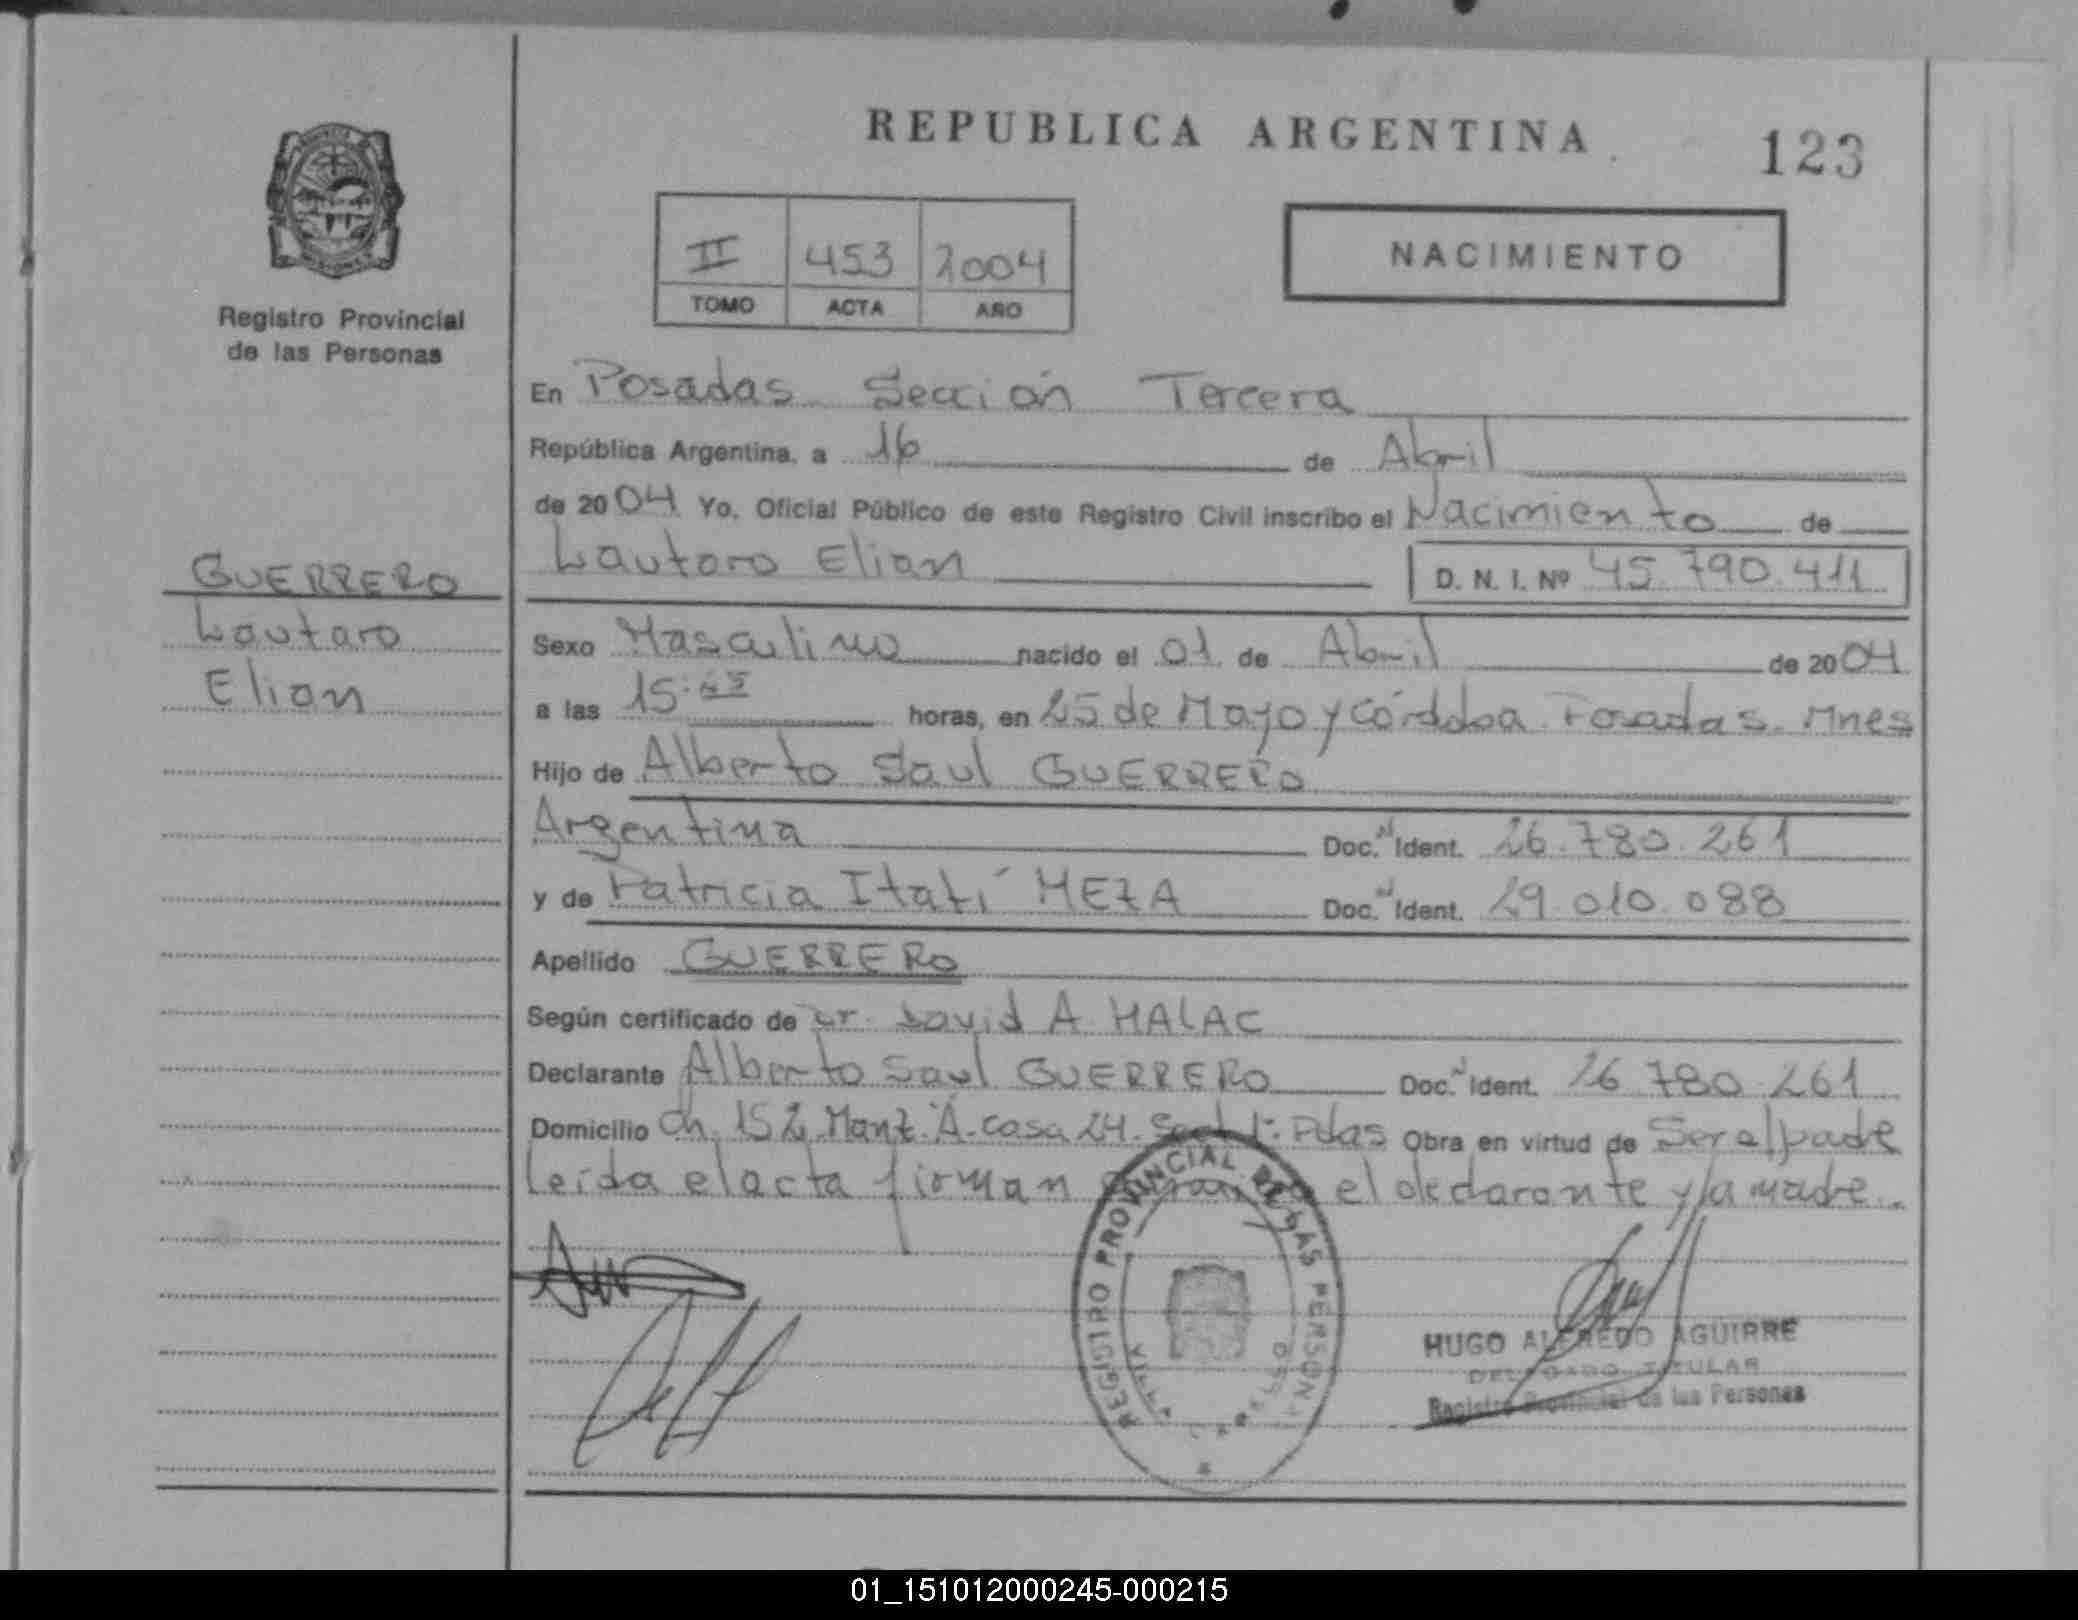 REPUBLICA ARGENTINA
123
II 453 2004
TOMO ACTA AÑO
NACIMIENTO
Registro Provincial
de las Personas
GUERRERO
Lautaro
Elian
En Posadas Sección Tercera
República Argentina, a 16 de Abril
de 2004 Yo, Oficial Público de este Registro Civil inscribo el Nacimiento de
Lautaro Elian D. N. I. Nº 45.790.411
Sexo Masculino nacido el 01 de Abril de 2004
a las 15:45 horas, en 25 de Mayo y Córdoba Posadas. Mnes
Hijo de Alberto Saul GUERRERO
Argentina Doc. N Ident. 26.780.261
y de Patricia Itatí MEZA Doc. N Ident. 29.010.088
Apellido GUERRERO
Según certificado de Dr. David A. MALAC
Declarante Alberto Saul GUERRERO Doc. N Ident. 26 780.261
Domicilio Ch. 152 Manz. "A" casa 24. 1º Pdas Obra en virtud de Ser el padre
leída el acta firman el declarante y la madre.
REGISTRO PROVINCIAL DE LAS PERSONAS
HUGO ALFREDO AGUIRRE
DELEGADO TITULAR
Registro Provincial de las Personas
01_151012000245-000215